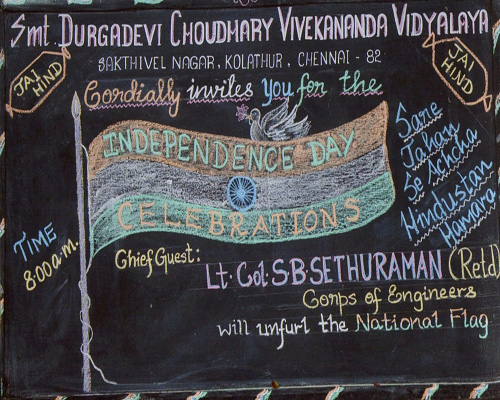 Smt. DURGADEVI CHOUDHARY VIVEKANANDA VIDYALAYA
SAKTHIVEL NAGAR, KOLATHUR, CHENNAI - 82
JAI HIND
JAI HIND
Cordially invites you for the
INDEPENDENCE DAY
CELEBRATIONS
Sare
Jahan
Se Achcha
Hindustan
Hamara
TIME
8:00 a.m.
Chief Guest:
Lt. Col S.B.SETHURAMAN (Retd)
Corps of Engineers
will unfurl the National Flag